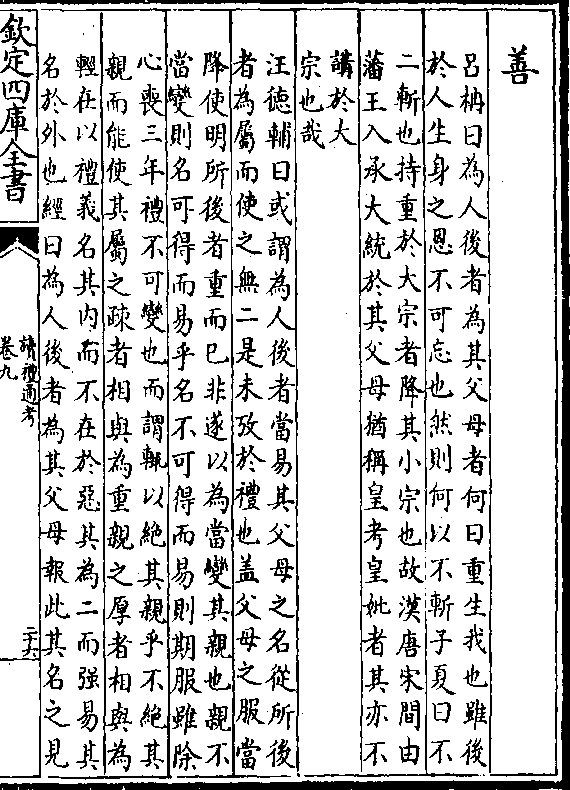 善
呂柟曰為人後者為其父母者何曰重生我也雖後
於人生身之恩不可忘也然則何以不斬子夏曰不
二斬也持重於大宗者降其小宗也故漢唐宋間由
藩王入承大統於其父母猶稱皇考皇妣者其亦不
講於大
宗也哉
汪德輔曰或謂為人後者當易其父母之名從所後
者為屬而使之無二是未攷於禮也盖父母之服當
降使明所後者重而已非遂以為當變其親也親不
當變則名可得而易乎名不可得而易則期服雖除
心喪三年禮不可變也而謂輒以絶其親乎不絶其
親而能使其屬之疎者相與為重親之厚者相與為
輕在以禮義名其内而不在於惡其為二而强易其
名於外也經曰為人後者為其父母報此其名之見
欽定四庫全書
讀禮通考
卷九
二十六